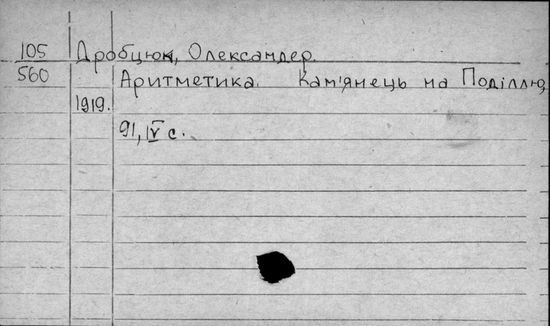 105 Дробцюк, Олександер.
560 Аритметика. Кам'янець на Поділлю,
1919.
91, IV с.